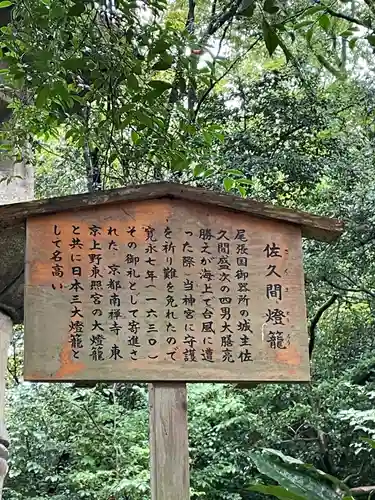 佐久間燈籠
尾張国御器所の城主佐
久間盛次の四男大膳亮
勝之が海上で台風に遭
った際、当神宮に守護
を祈り難を免れたので
寛永七年（一六三〇）
その御礼として寄進さ
れた。京都南禅寺　東
京上野東照宮の大燈籠
と共に日本三大燈籠と
して名高い